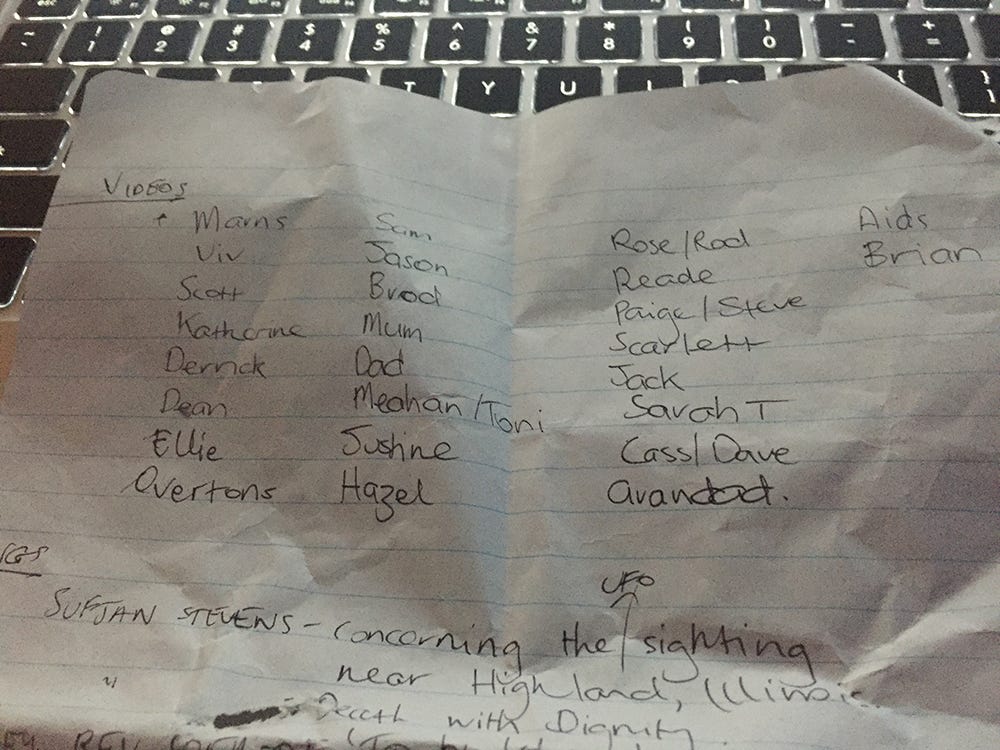 ~ ! @ # $ % ^ & * ( ) - +
1 2 3 4 5 6 7 8 9 0 =
T Y U { }
VIDEOS
Marns Sam Rose/Rod Aids
Viv Jason Reade Brian
Scott Brod Paige/Steve
Katherine Mum Scarlett
Derrick Dad Jack
Dean Meahan/Toni Sarah T
Ellie Jushine Cass/Dave
Overtons Hazel Grandad.
UFO
SUFJAN STEVENS - Concerning the sighting
near Highland, Illinois.
" Death with Dignity